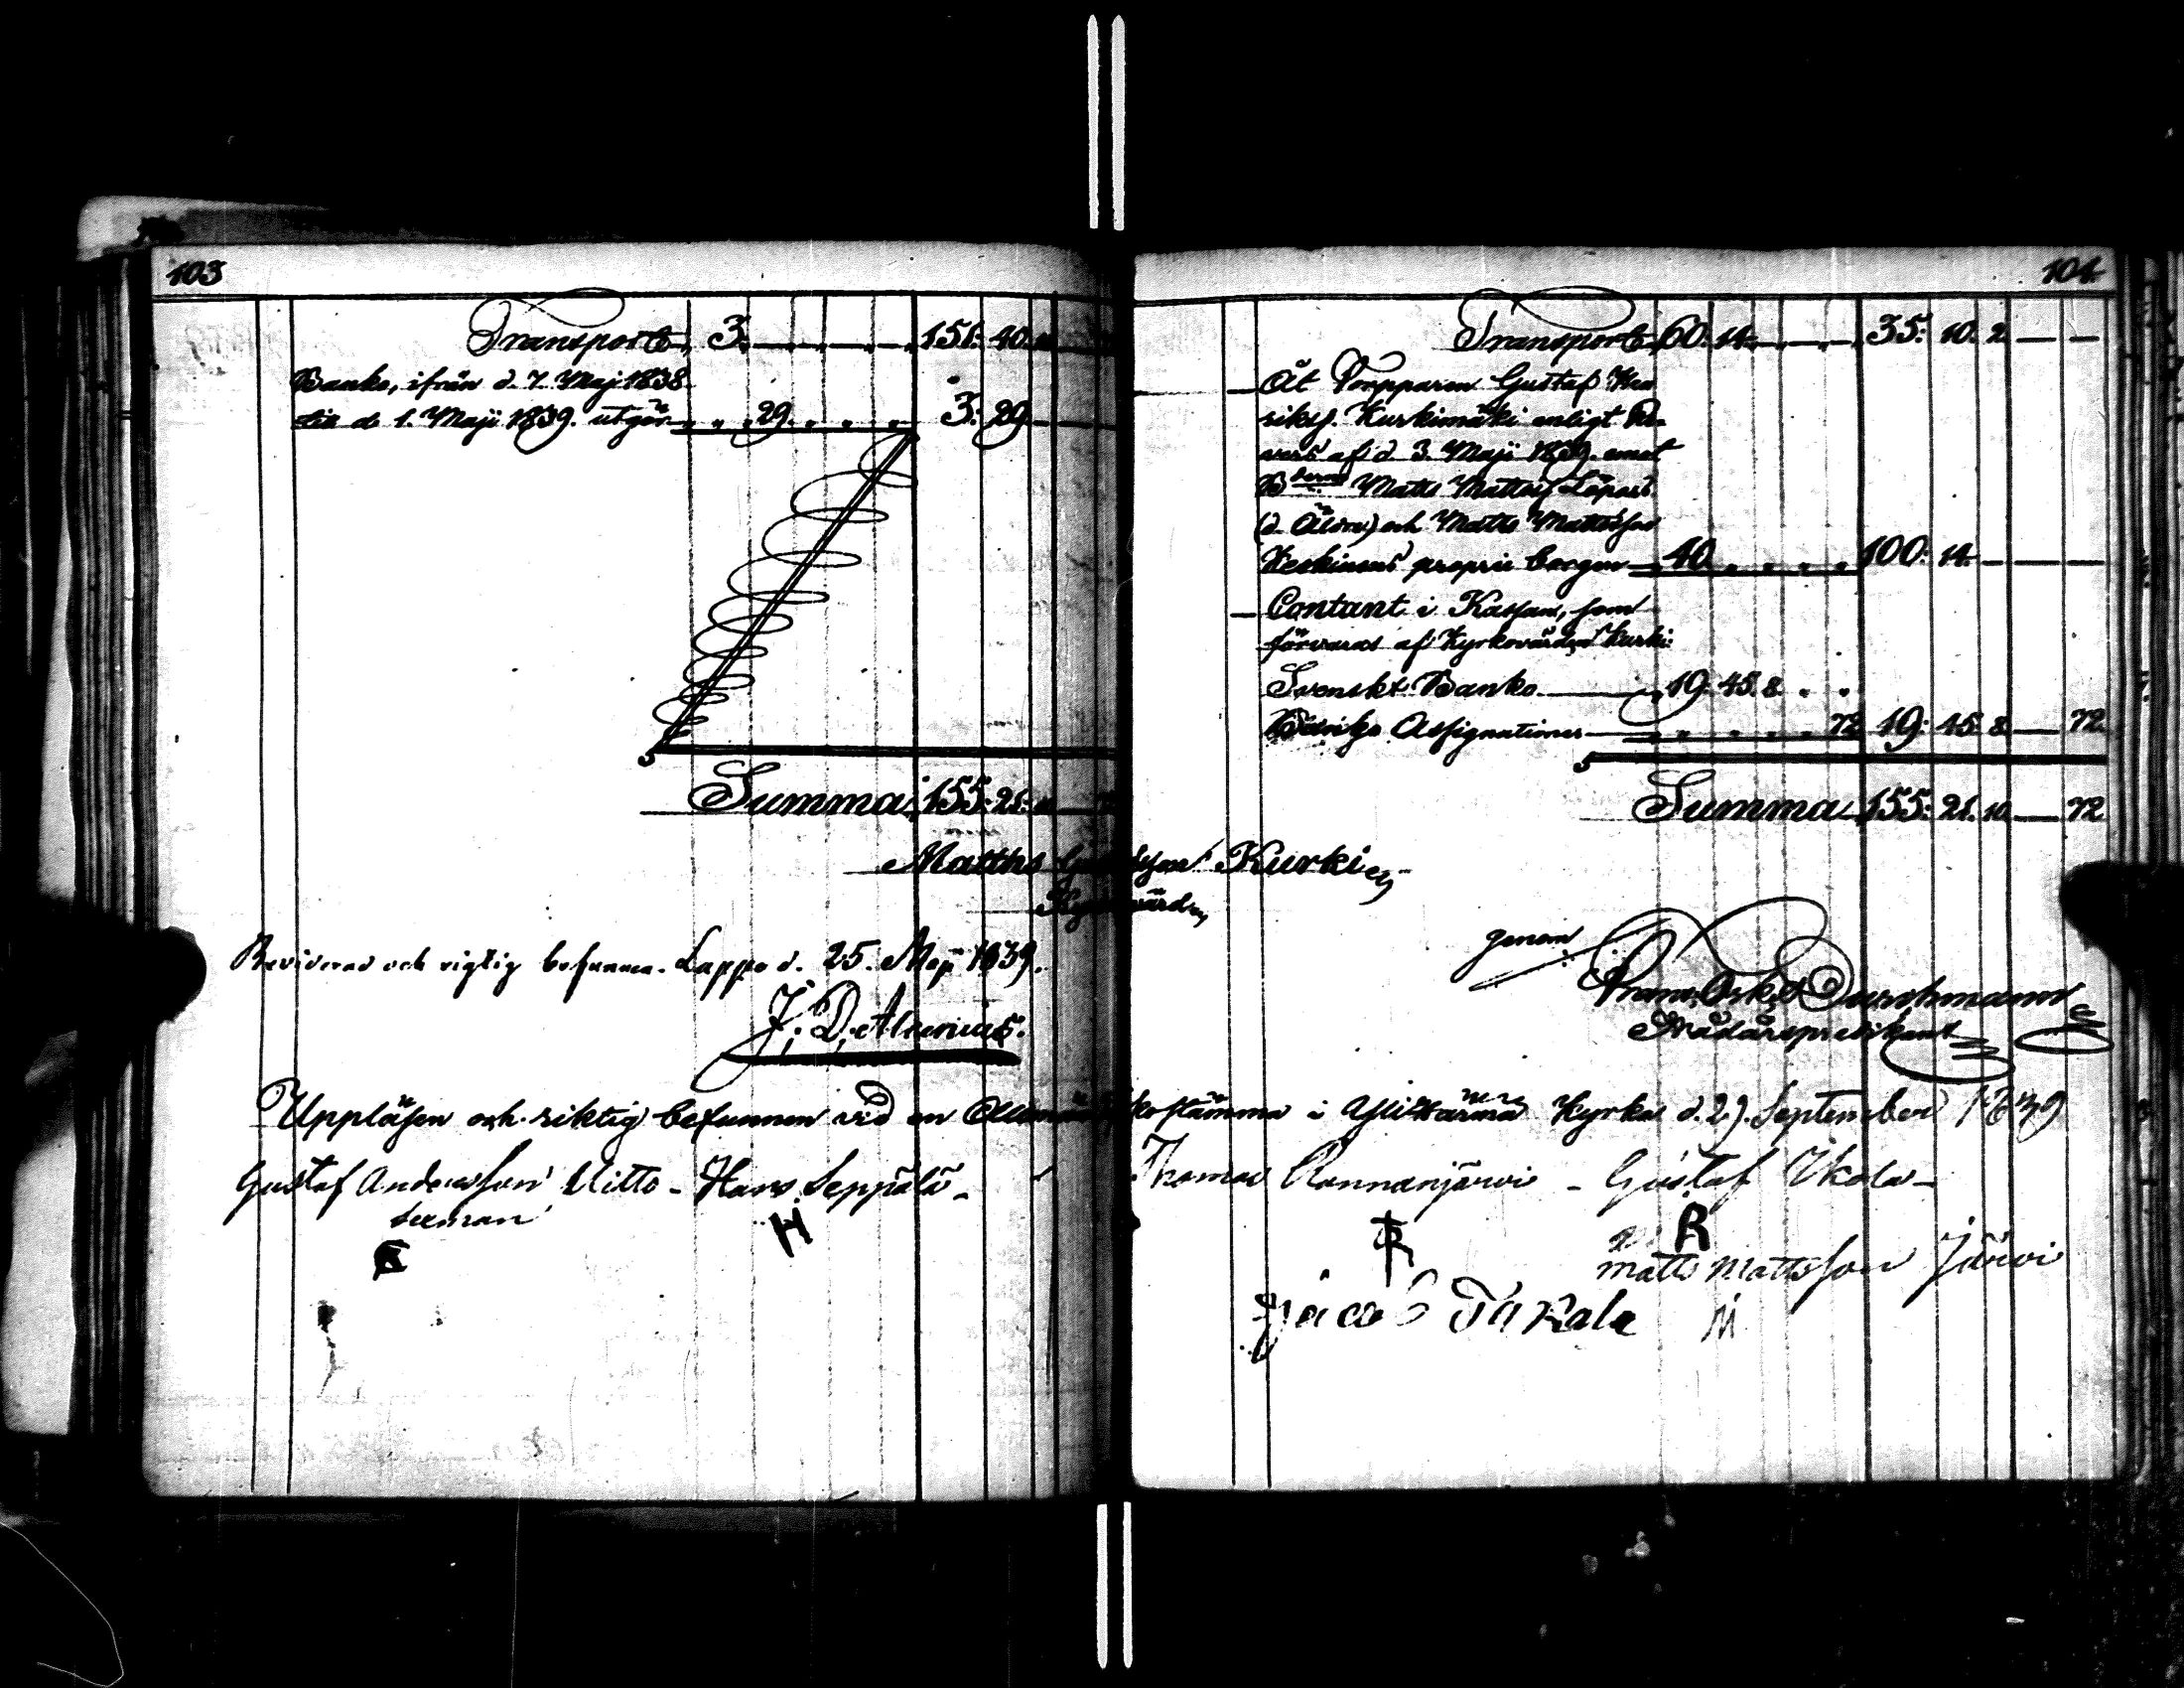 103
Transport 3. 151: 40.
Banko, ifrån d. 7. Maj 1838
till d. 1. Maji 1839. utgör 29. 3: 29.
Summa 155: 21:
104.
Transport 60. 14. 35: 10. 2
Åt Torpparen Gustaf Hen
riksf. Kurkimäki enligt Re-
vers af d. 3. Maji 1839. emot
Matts Mattsf
(d. Äldre) och Matts Mattsson
Keskinens proprie borgen 40. 100: 14
Contant i Kassan, som
förvaras af Kyrkovärden Kurki:
Svenskt Banko 19. 45. 8.
Banko Assignationer 72 19: 45: 8 72
Summa 155: 21. 10 72
Matths Kurki
genom
Reviderad och rigtig befunnen. Lappo d. 25. Maji 1839.
Frans Durchmann
J. D. Alcenius.
Nådårspredikant
Uppläsen och riktig befunnen vid en Allmän kostämma i Ylihärmä Kyrka d. 29. September 1839
Gustaf Andersson Uitto - Hans Seppälä - Thomas Rannanjärvi - Gustaf Ikola -
sexman
H R
Matts Mattsson Järvi
Jacob Takala M